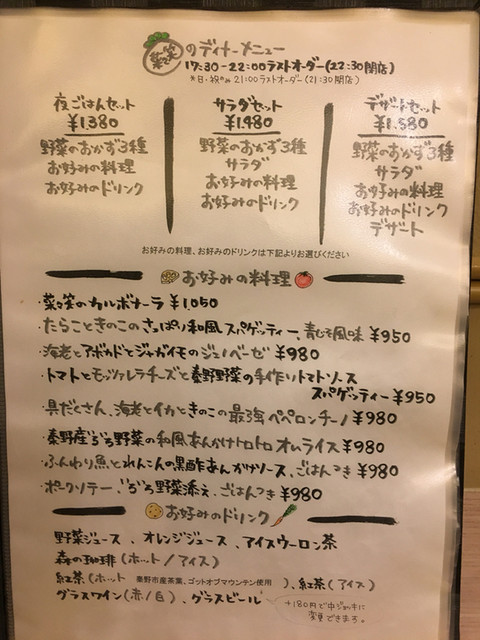 菜々笑のディナーメニュー
17:30-22:00ラストオーダー(22:30閉店)
※日・祝のみ 21:00ラストオーダー(21:30閉店)
夜ごはんセット
¥1,380
野菜のおかず3種
お好みの料理
お好みのドリンク
サラダセット
¥1,480
野菜のおかず3種
サラダ
お好みの料理
お好みのドリンク
デザートセット
¥1,580
野菜のおかず3種
サラダ
お好みの料理
お好みのドリンク
デザート
お好みの料理、お好みのドリンクは下記よりお選びください
お好みの料理
・菜々笑のカルボナーラ ¥1,050
・たらことときのこのさっぱり和風スパゲッティー、青じそ風味 ¥950
・海老とアボカドとジャガイモのジェノベーゼ ¥980
・トマトとモッツァレラチーズと秦野野菜の手作りトマトソース
スパゲッティー ¥950
・具だくさん、海老とイカときのこの最強ペペロンチーノ ¥980
・秦野産ごろごろ野菜の和風あんかけトロトロオムライス ¥980
・ふんわり魚とれんこんの黒酢あんかけソース、ごはんつき ¥980
・ポークソテー、ごろごろ野菜添え、ごはんつき ¥980
お好みのドリンク
野菜ジュース、オレンジジュース、アイスウーロン茶
森の珈琲(ホット/アイス)
紅茶(ホット 秦野市産茶葉、ゴットオブマウンテン使用)、紅茶(アイス)
グラスワイン(赤/白)、グラスビール
+180円で中ジョッキに
変更できます。